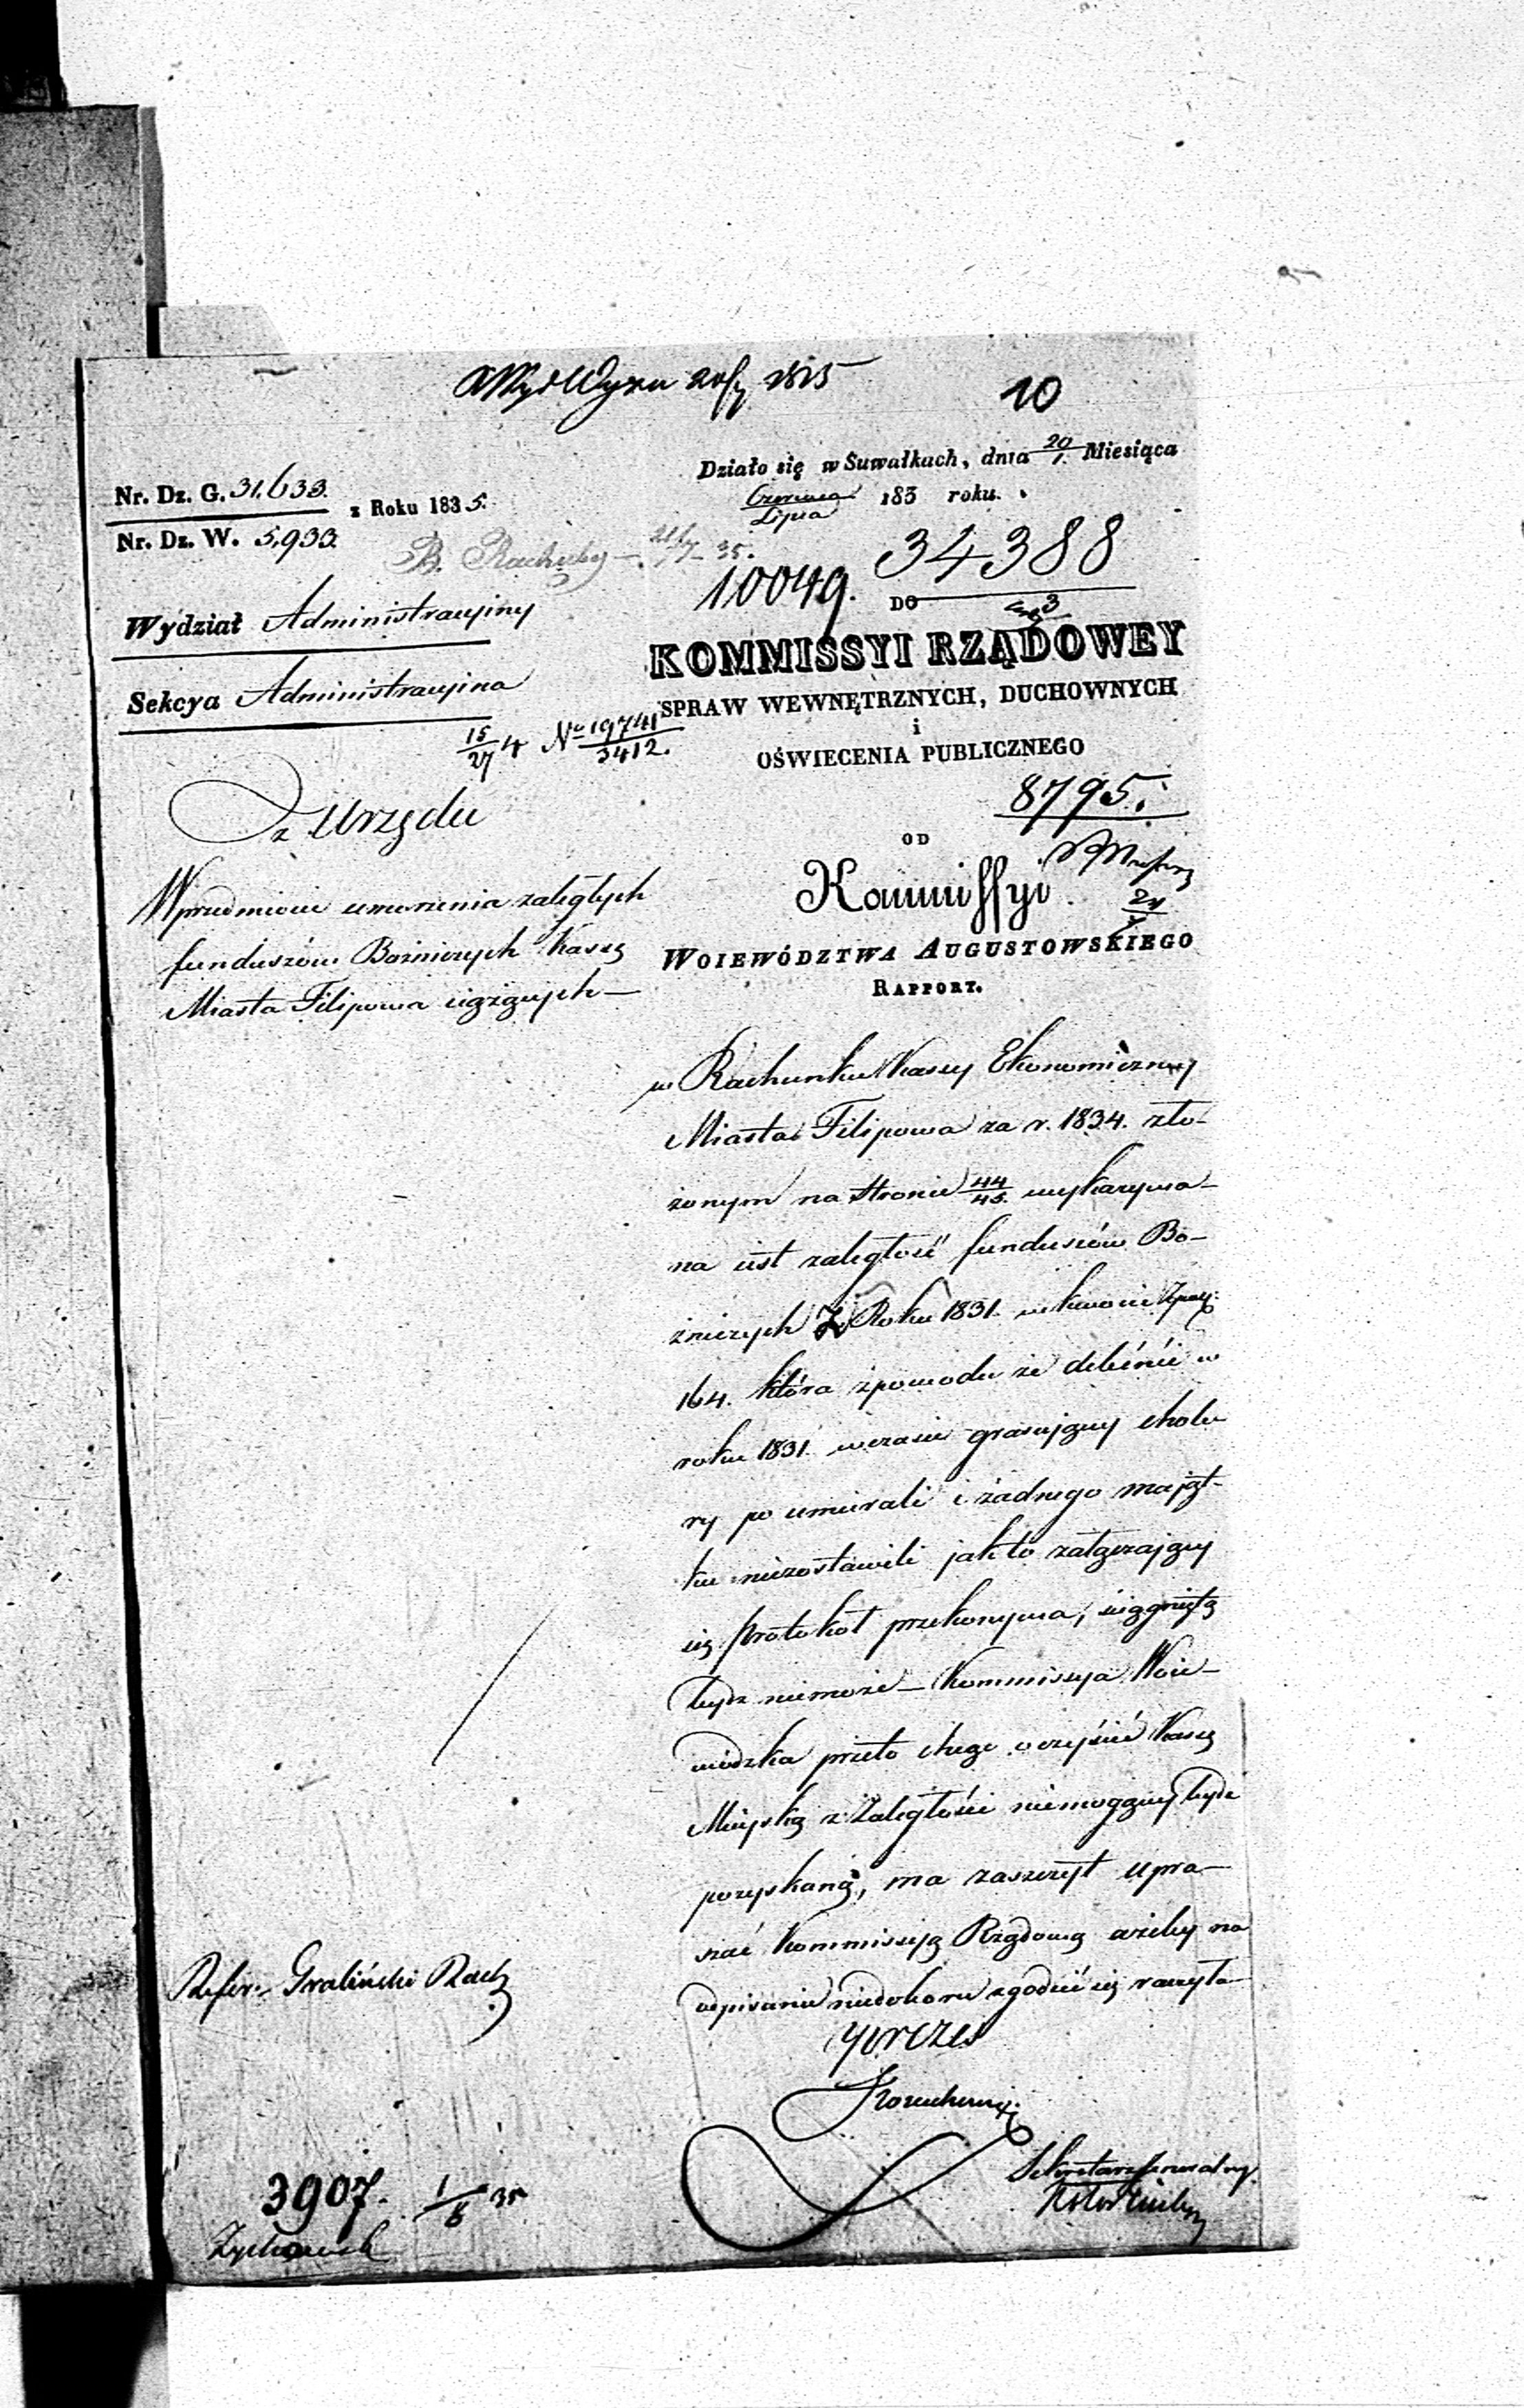 10
Działo się w Suwałkach, dnia 20/1. Miesiąca
Czerwca/Lipca 183 roku.
Nr. Dz. G. 31,633.
z Roku 1835.
Nr. Dz. W. 5,933.
34388
10049.
DO
Wydział Administracyiny
Sekcya Administracyina
KOMMISSYI RZĄDOWEY
SPRAW WEWNĘTRZNYCH, DUCHOWNYCH
i
OŚWIECENIA PUBLICZNEGO
15/27 4 No 19741/3412.
8795.
z Urzędu
OD
Kommissyi
WOIEWÓDZTWA AUGUSTOWSKIEGO
RAPPORT.
W przedmiocie umorzenia zaległych
funduszów Bożniczych Kassę
Miasta Filipowa ciążących—
w Rachunku Kassy Ekonomiczney
Miasta Filipowa za r. 1834. zło-
żonym na stronie 44/45. wykazywa-
na iest zaległość funduszów Bo-
żniczych Z Roku 1831. w kwocie
164. która z powodu że debenci w
roku 1831. w czasie grasującey chole
ry po umierali i żadnego mająt-
ku niezostawili jak to załączający
się Protokół przekonywa, ściągniętą
bydź niemoże— Kommissya Woie-
wódzka przeto chcąc oczyścić Kassę
Mieyską z Zaległości niemogącey bydź
pozyskaną, ma zaszczyt upra-
szać Kommissyą Rządową ażeby na
odpisanie niedoboru zgodzić się raczyła—
Prezes
Refer. Graliński Rach
Sekretarz Jeneralny.
3907. 1/6 35